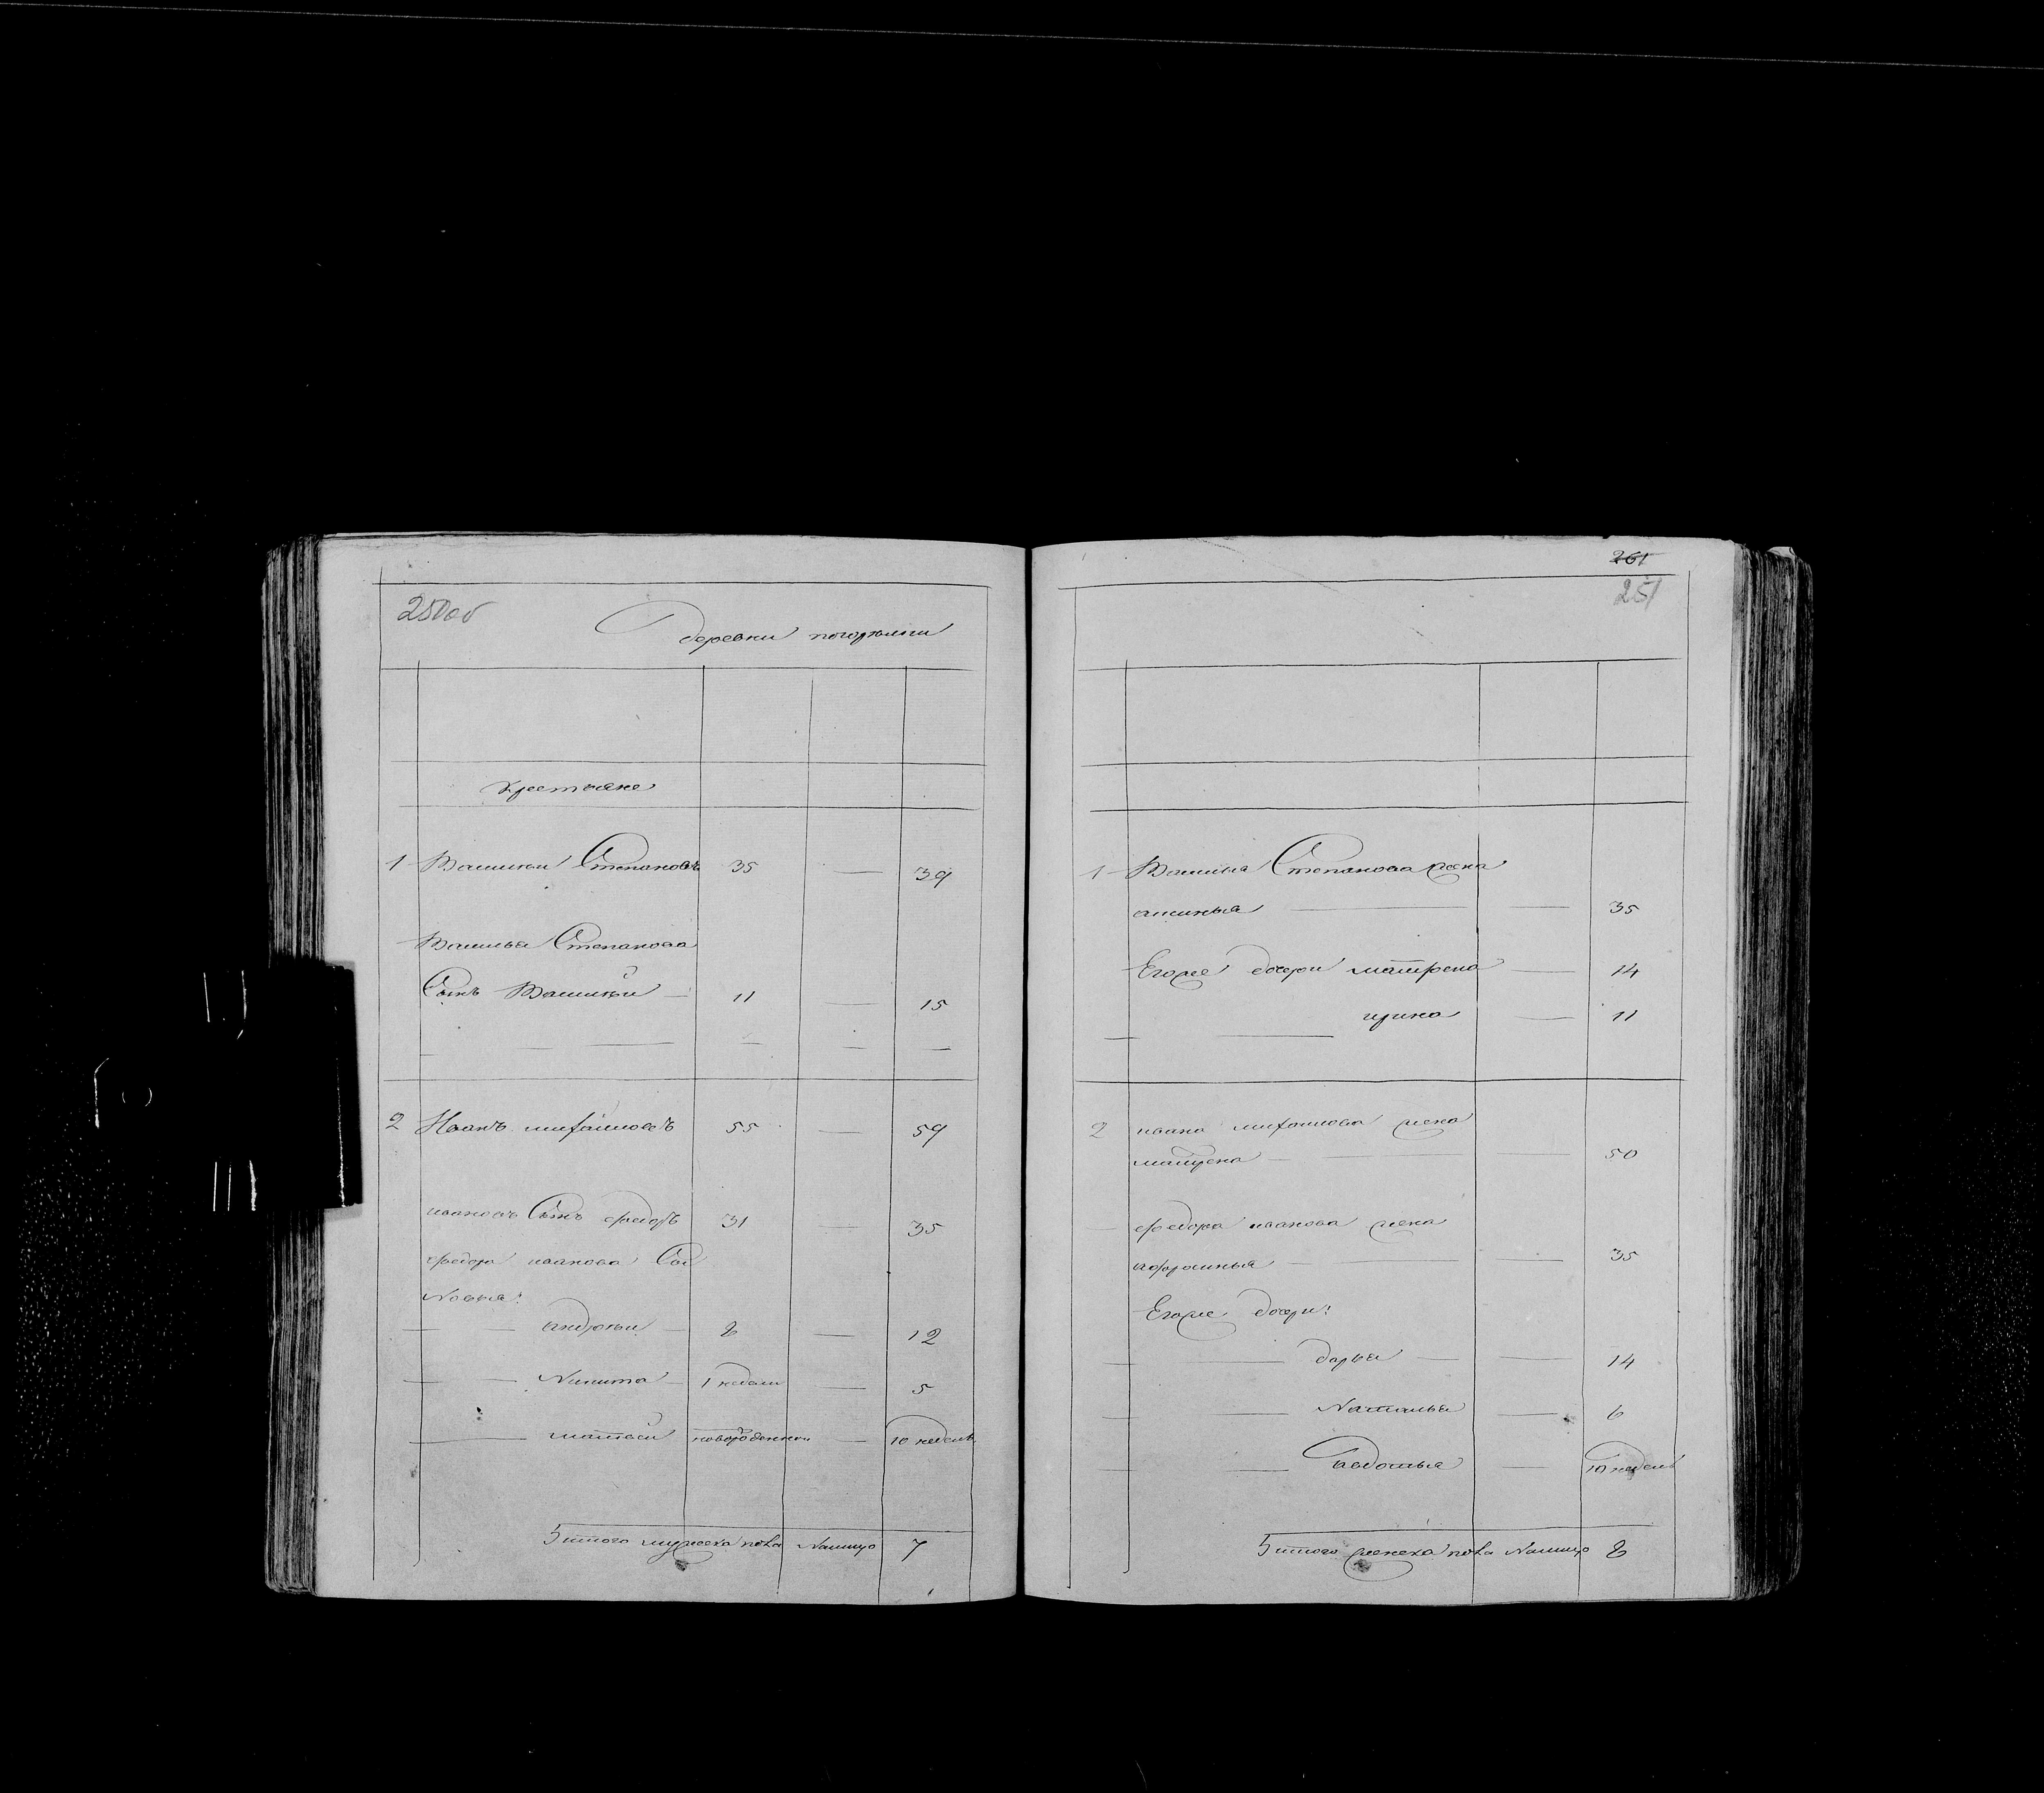 250 об
деревни погорелки
крестьяне
1 Василий Степановъ 35 — 39
Василья Степанова
Сынъ Василий — 11 — 15
2 Иванъ михайловъ 55 — 59
ивановъ Сынъ федоръ 31 — 35
федора иванова Сы
новья:
андрей — 8 — 12
Никита — 1 недели — 5
матвей новорожденной — 10 недель
Итого мужеска пола налицо 7
261
251
1 Василья Степанова жена
аксинья — 35
Егоже дочери матрена — 14
ирина — 11
2 ивана михайлова жена
матрена — 50
федора иванова жена
афросинья — 35
Егоже дочери:
дарья — 14
Наталья — 6
авдотья — 10 недель
Итого женска пола налицо 8